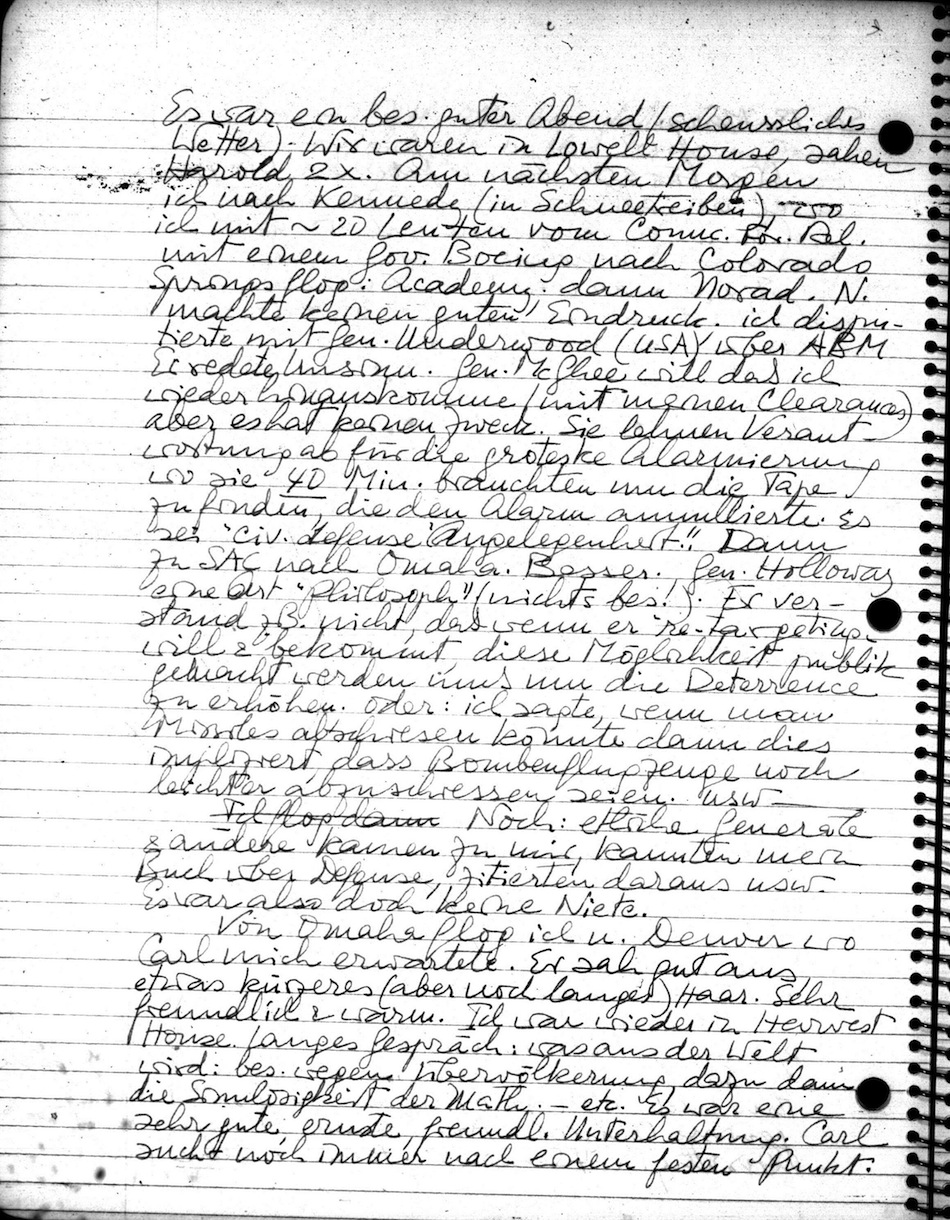 Es war ein bes. guter Abend (scheussliches
Wetter). Wir waren in Lowell House, sahen
Harold 2x. Am nächsten Morgen
ich nach Kennedy (in Schneetreiben), wo
ich mit ~ 20 Leuten vom Counc. For. Rel.
mit einem Gov. Boeing nach Colorado
Springs flog: Academy; dann Norad. N.
machte keinen guten Eindruck. ich dispu-
tierte mit Gen. Underwood (USA) über ABM
Er redete Unsinn. Gen. McGhee will das ich
wieder hinauskomme (mit meinen Clearances)
aber es hat keinen Zweck. Sie lehnen Verant-
wortung ab für die groteske Alarmierung
wo sie 40 Min. brauchten um die Tape
zu finden, die den Alarm annullierte. Es
sei "civ. defense Angelegenheit"! Dann
zu SAC nach Omaha. Besser. Gen. Holloway
eine Art "Philosoph" (nichts bes!). Er ver-
stand z.B. nicht, das wenn er "re-targeting"
will & bekommt, diese Möglichkeit publik
gemacht werden muss um die Deterrence
zu erhöhen. Oder: ich sagte, wenn man
Missiles abschiesen könnte dann dies
impliziert, dass Bombenflugzeuge noch
leichter abzuschiessen seien. usw—
Ich flog dann Noch: etliche Generale
& andere kamen zu mir, kannten mein
Buch über Defense, zitierten daraus usw.
Es war also doch keine Niete.
Von Omaha flog ich n. Denver wo
Carl mich erwartete. Er sah gut aus,
etwas kürzeres (aber noch langes) Haar. Sehr
freundlich & warm. Ich war wieder in Harvest
House. Langes Gespräch: was aus der Welt
wird: bes. wegen Übervölkerung, dazu dann
die Sinnlosigkeit der Math. – etc. Es war eine
sehr gute, ernste, freundl. Unterhaltung. Carl
sucht noch immer nach einem festen Punkt.